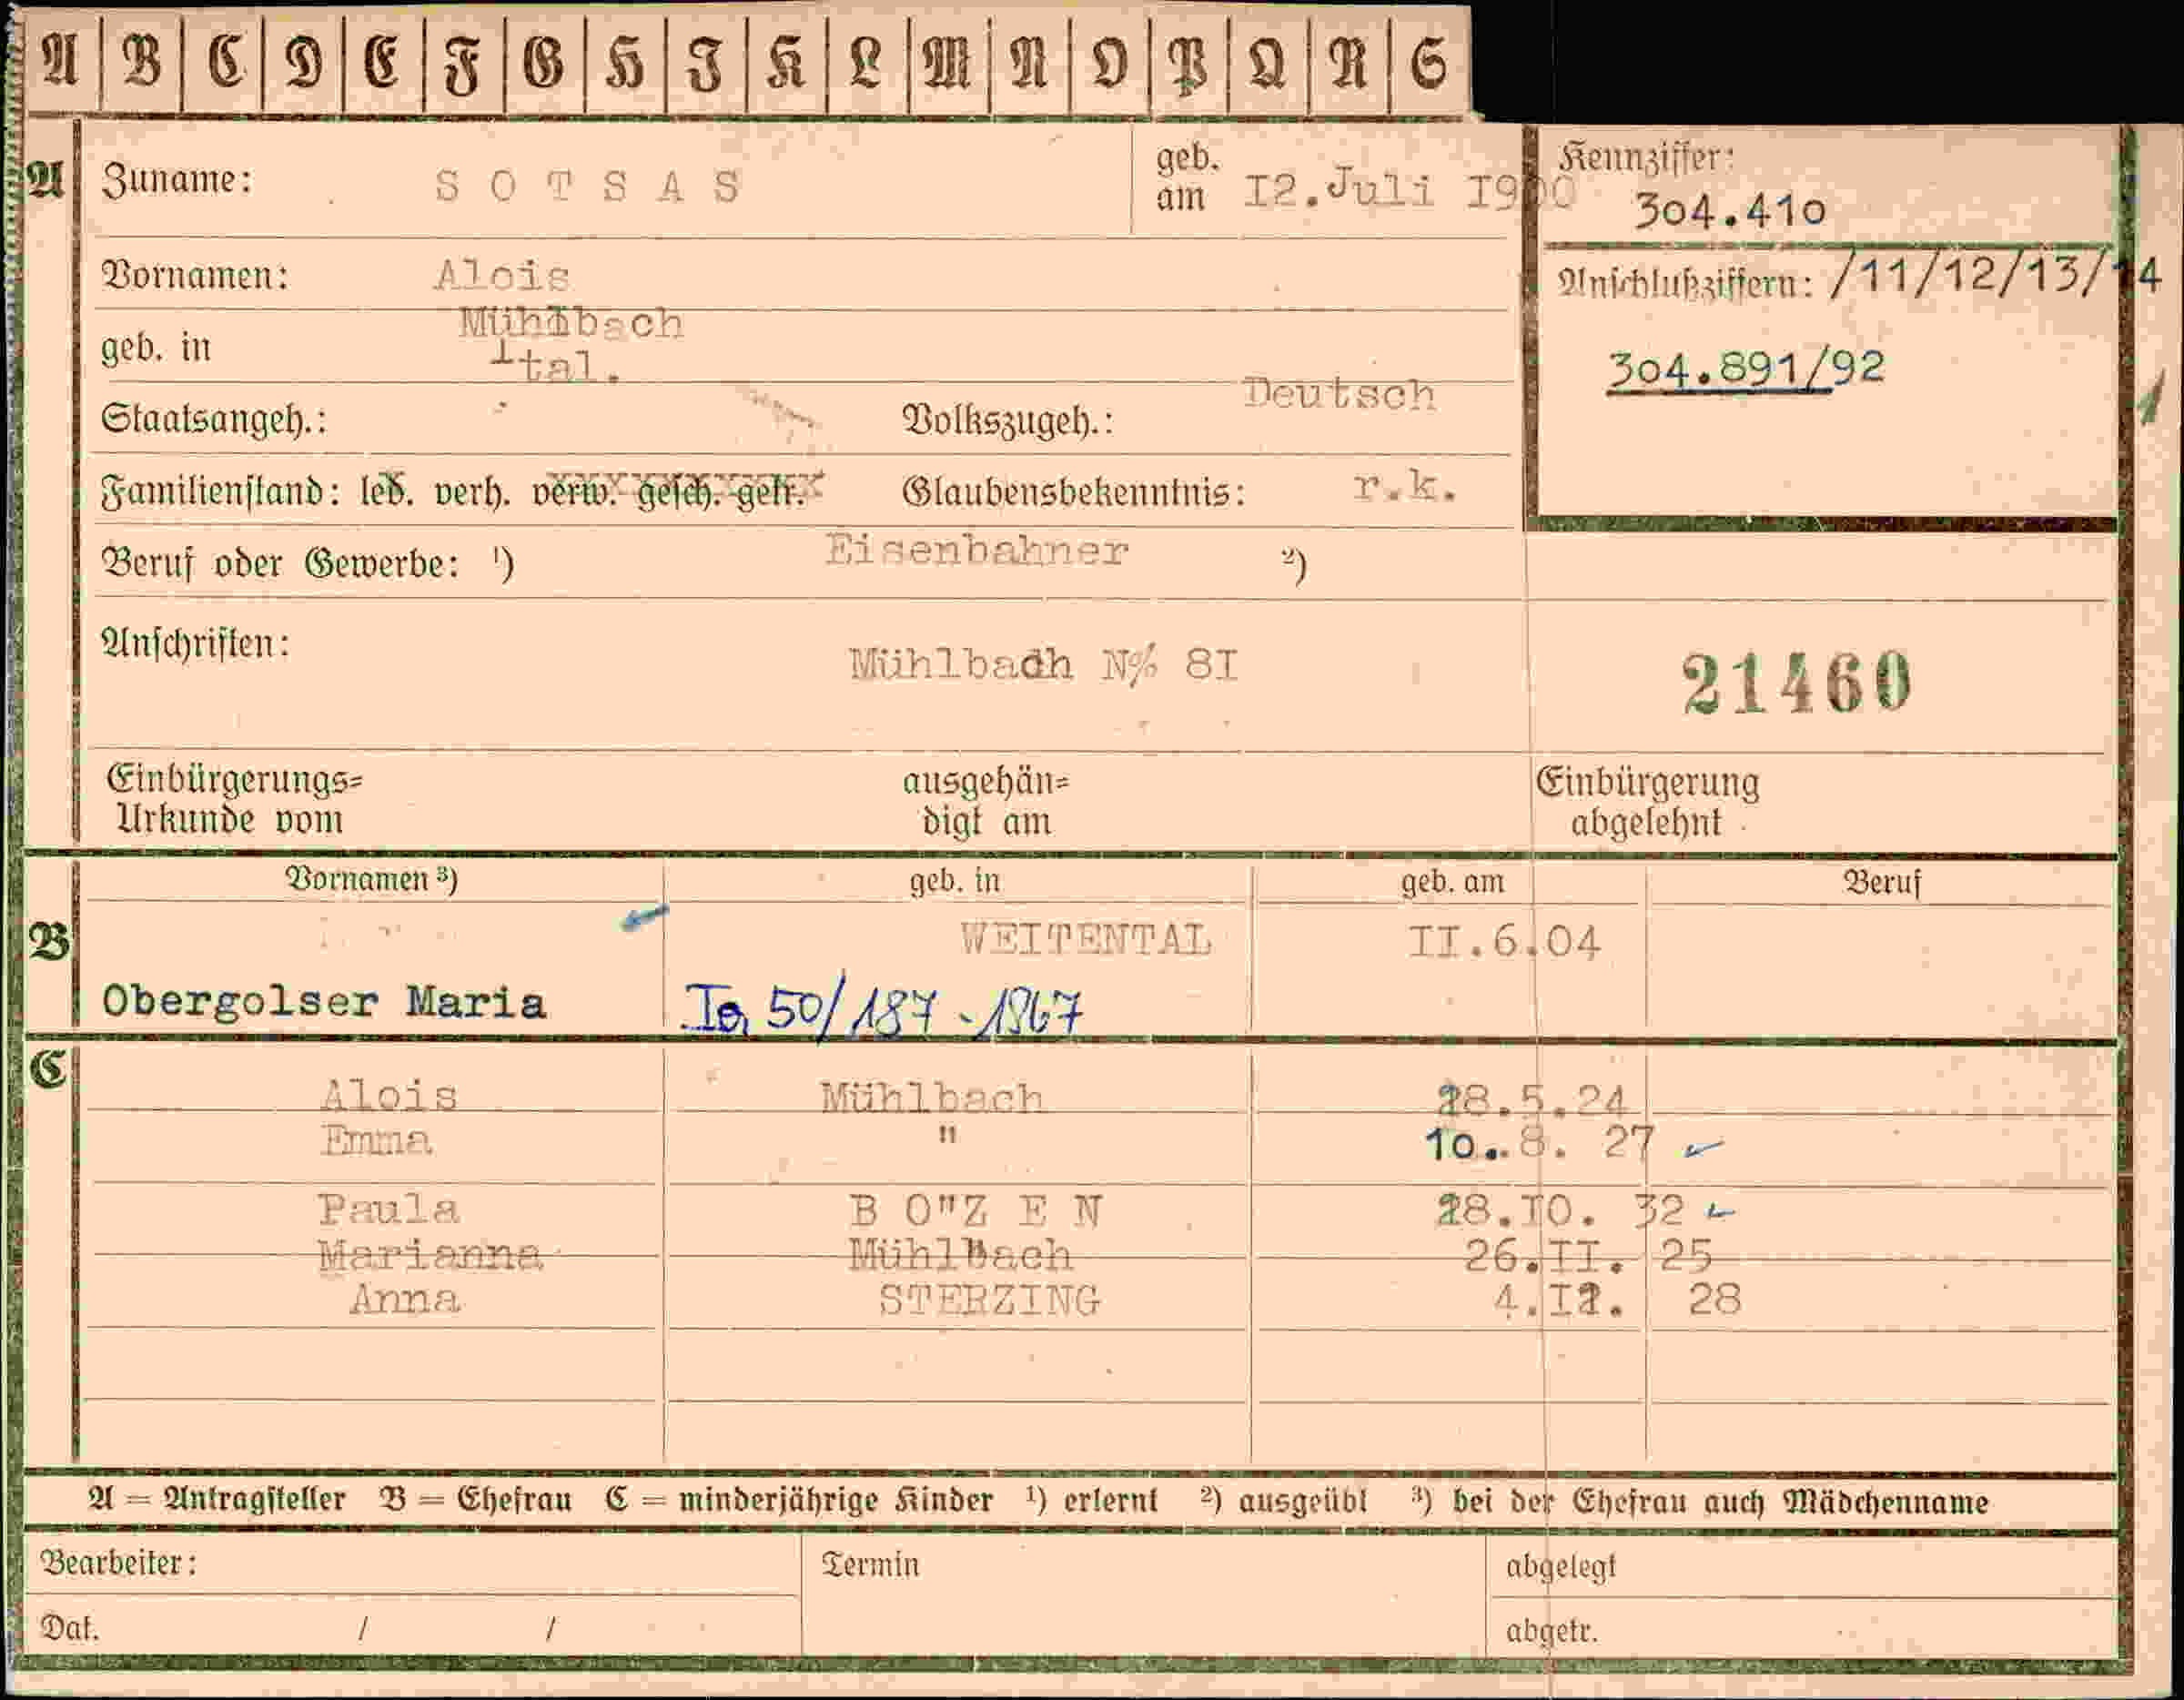 A B C D E F G H I K L M N O P Q R S
A Zuname: S O T S A S geb. am 12.Juli 1900 Kennziffer: 304.410
Vornamen: Alois Anschlußziffern: /11/12/13/14
geb. in Mühlbach 304.891/92
Ital.
Staatsangeh.: Volkszugeh.: Deutsch
Familienstand: led. verh. verw. gesch. getr. Glaubensbekenntnis: r.k.
Beruf oder Gewerbe: 1) Eisenbahner 2)
Anschriften: Mühlbach N% 8I 21460
Einbürgerungs= ausgehän= Einbürgerung
Urkunde vom digt am abgelehnt
Vornamen 3) geb. in geb. am Beruf
B WEITENTAL II.6.04
Obergolser Maria 50/187-1967
C
Alois Mühlbach 28.5.24
Emma " 10..8. 27
Paula B O"Z E N 28.I0. 32
Marianna Mühlbach 26.II. 25
Anna STERZING 4.I2. 28
A = Antragsteller B = Ehefrau C = minderjährige Kinder 1) erlernt 2) ausgeübt 3) bei der Ehefrau auch Mädchenname
Bearbeiter: Termin abgelegt
Dat. / / abgetr.